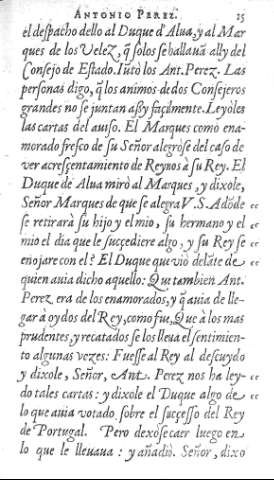 ANTONIO PEREZ. 25
el despacho dello al Duque d'Alua, y al Mar
ques de los Velez, q̃ solos se hallauã ally del
Consejo de Estado. Iũtò los Ant. Perez. Las
personas digo, q̃ los animos de dos Consejeros
grandes no se juntan assy facilmente. Leyòles
las cartas del auiso. El Marques como ena-
morado fresco de su Señor alegròse del caso de
ver acresçentamiento de Reynos à su Rey. El
Duque de Alua mirò al Marques, y dixole,
Señor Marques de que se alegra V. S. Adõde “
se retirarà su hijo y el mio, su hermano y el “
mio el dia que le suçcediere algo, y su Rey se “
enojare con el? El Duque que viò delãte de “
quien auia dicho aquello: Que tambien Ant.
Perez era de los enamorados, y q̃ auia de lle-
gar à oydos del Rey, como fue, Que à los mas
prudentes y recatados se los lleua el sentimien-
to algunas vezes: Fuesse al Rey al descuydo
y dixole, Señor, Ant. Perez nos ha ley- “
do tales cartas: y dixole el Duque algo de “
lo que auia votado sobre el suçesso del Rey
de Portugal. Pero dexòse caer luego en
lo que le lleuaua: y añadiò. Señor, dixo